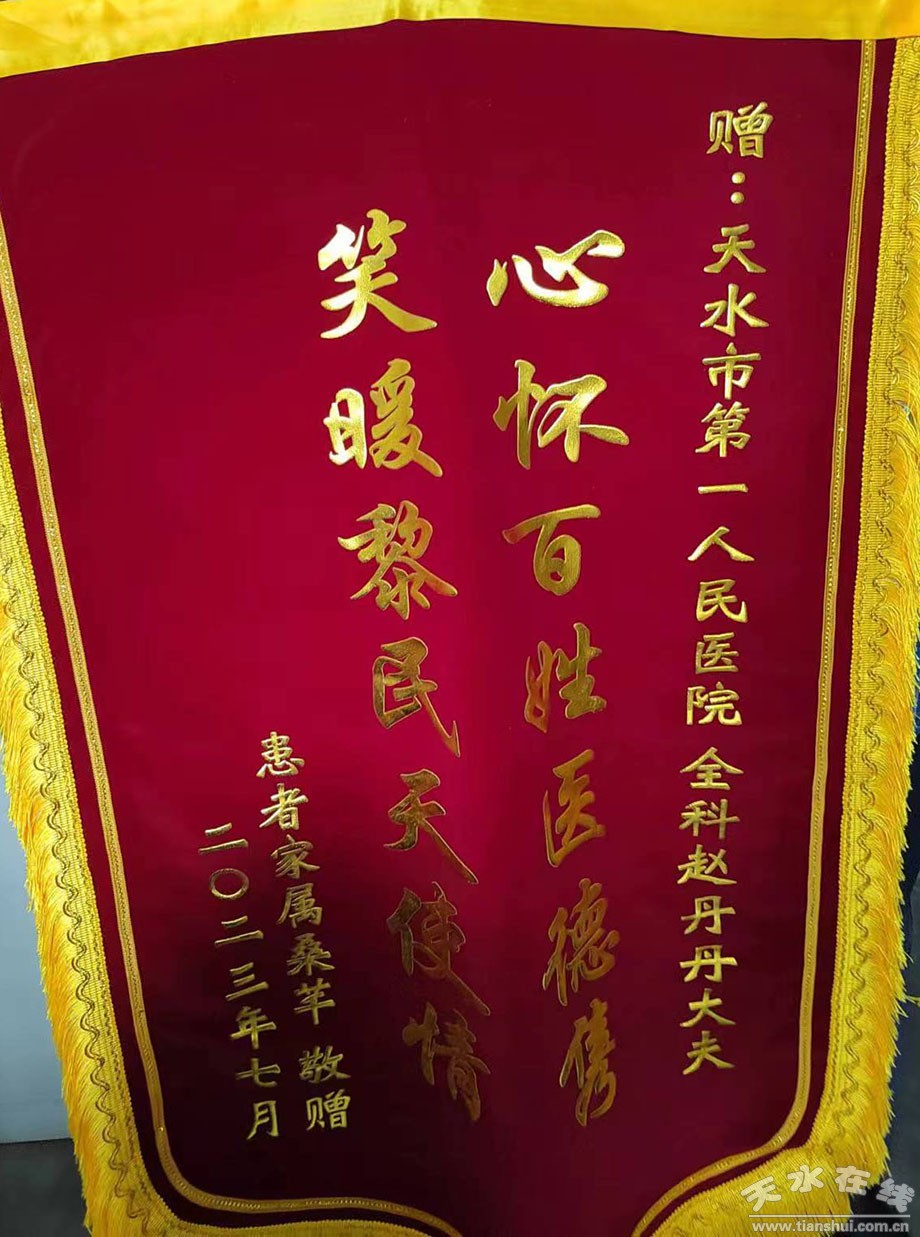 赠：天水市第一人民医院 全科赵丹丹大夫
心怀百姓医德隽
笑暖黎民天使情
患者家属桑芊 敬赠
二〇二三年七月
天水在线
www.tianshui.com.cn